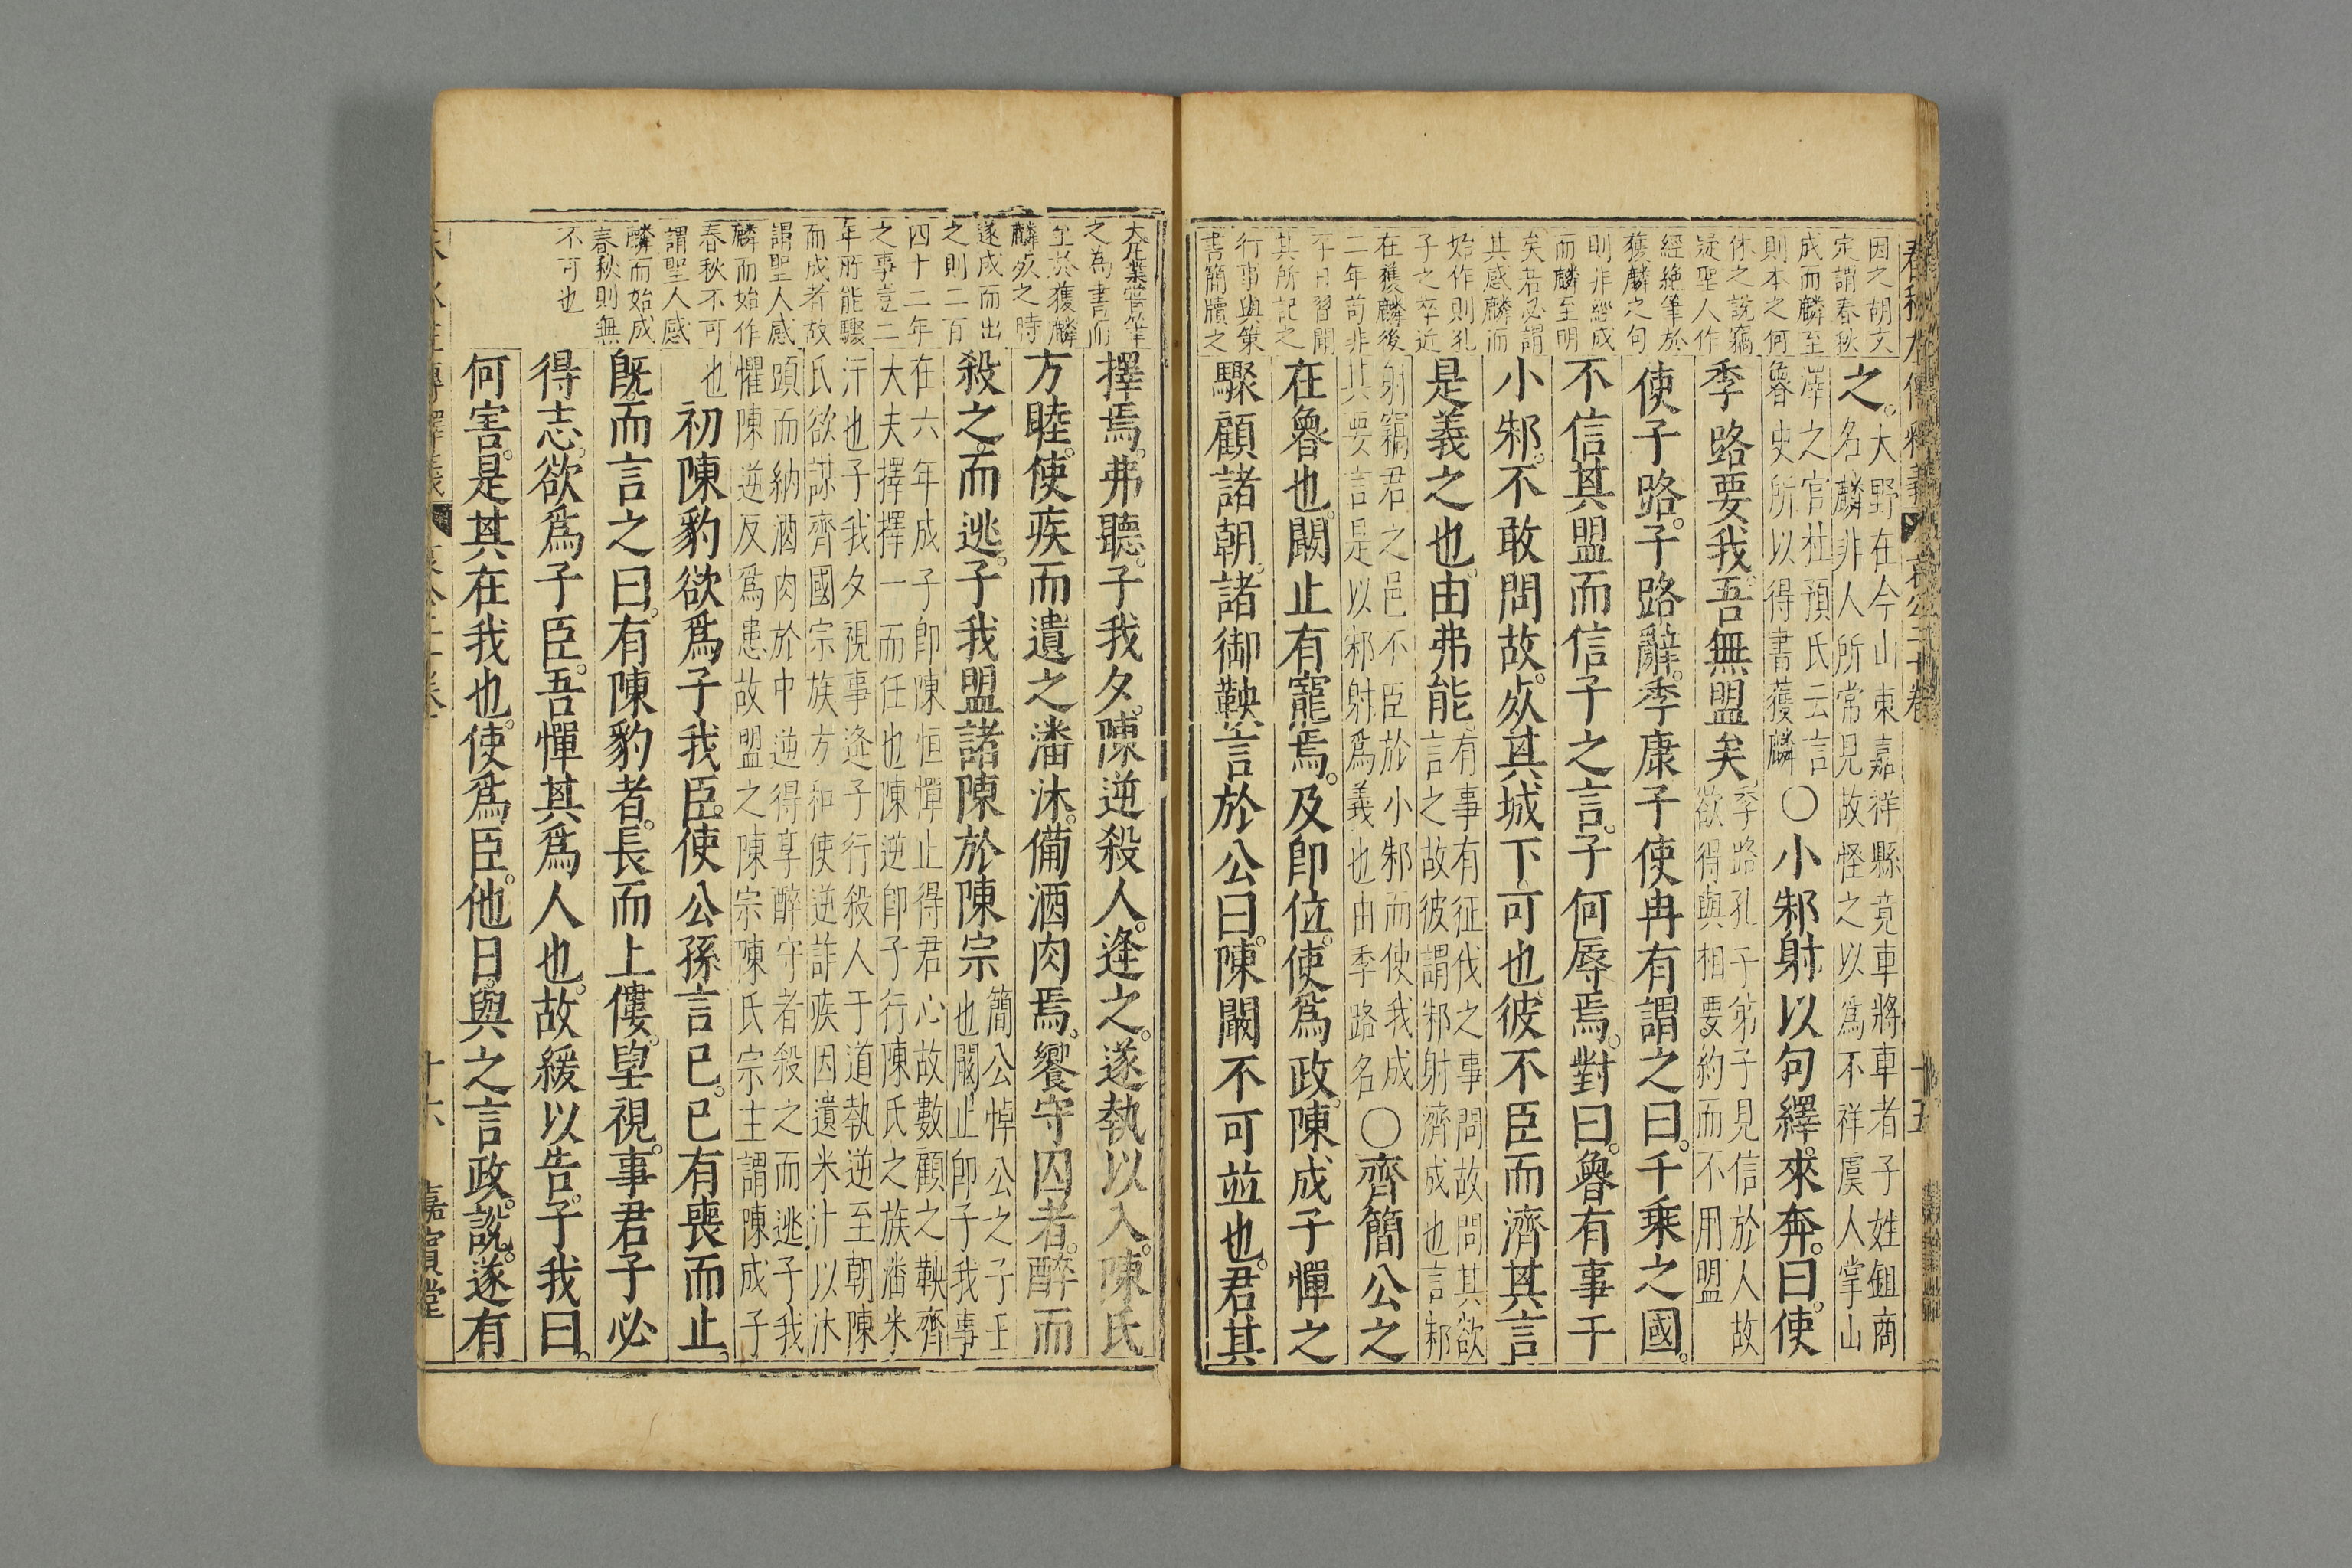 春秋左傳釋義 哀公二十卷 十五
因之胡文
定謂春秋
成而麟至
則本之何
休之說竊
疑聖人作
經絶筆於
獲麟之句
則非經成
而麟至明
矣若必謂
其感麟而
始作則孔
子之卒近
在獲麟後
二年苟非
平日習聞
其所記之
行事與策
書簡牘之
之。大野在今山東嘉祥縣竟車將車者子姓鉏商
名麟非人所常見故怪之以爲不祥虞人掌山
澤之官杜預氏云言
魯史所以得書獲麟〇小邾射以句繹。來奔。曰。使
季路要我。吾無盟矣。季路孔子弟子見信於人故
欲得與相要約而不用盟
使子路。子路辭。季康子使冉有謂之曰。千乗之國。
不信其盟而信子之言。子何辱焉。對曰。魯有事于
小邾。不敢問故。死其城下。可也。彼不臣而濟其言
是義之也。由弗能。有事有征伐之事問故問其欲
言之故彼謂邾射濟成也言邾
射竊君之邑不臣於小邾而使我成
其要言是以邾射爲義也由季路名〇齊簡公之
在魯也。闞止有寵焉。及卽位。使爲政。陳成子憚之
驟顧諸朝。諸御鞅言於公曰。陳闞不可並也。君其
大凡業嘗筆
之為書而
至於獲麟
麟死之時
遂成而出
之則二百
四十二年
之事豈二
年所能驟
而成者故
謂聖人感
麟而始作
春秋不可
謂聖人感
麟而始成
春秋則無
不可也
擇焉。弗聽。子我夕。陳逆殺人。逢之。遂執以入。陳氏
方睦。使疾而遺之潘沐。備酒肉焉。饗守囚者。醉而
殺之。而逃。子我盟諸陳於陳宗簡公悼公之子壬
也闞止卽子我事
在六年成子卽陳恒憚止得君心故數顧之鞅齊
大夫擇擇一而任也陳逆卽子行陳氏之族潘米
汁也子我夕視事逢子行殺人于道執逆至朝陳
氏欲謀齊國宗族方和使逆詐疾因遺米汁以沐
頭而納酒肉於中逆得享醉守者殺之而逃子我
懼陳逆反爲患故盟之陳宗陳氏宗主謂陳成子
也初陳豹欲爲子我臣。使公孫言已。已有喪而止。
旣。而言之曰。有陳豹者。長而上僂。望視。事君子必
得志。欲爲子臣。吾憚其爲人也。故緩以告。子我曰。
何害。是其在我也。使爲臣。他日。與之言政。說。遂有
十六 嘉賓堂